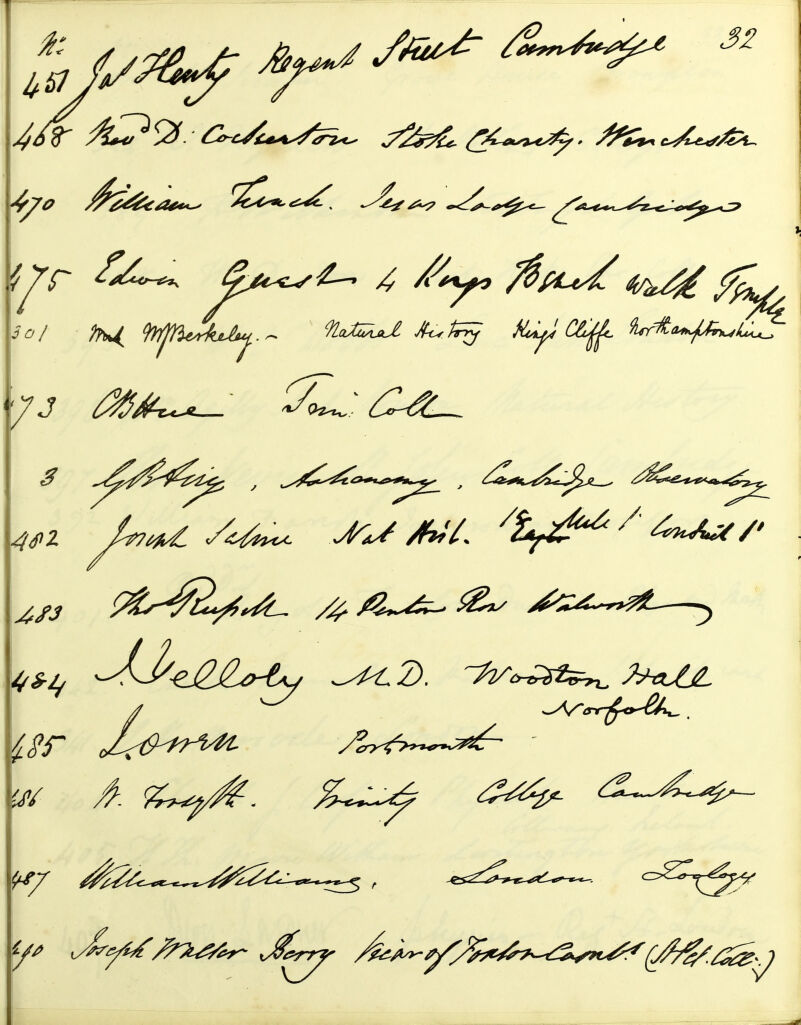 No. 32
451 Jas Henty Regent Street Cambridge
468 Revd D. Cockerton Stoke Charity. Winchester
470 William Cambridge
475 Edwin Guest 4 Kings Bench walk Temple
301 MJBerkeley. - Natural History King's Cliffe Northamptonshire
473 CBHue Trin: Coll
3 GBAiry, Astronomy, Cambridge Observatory
482 Joseph Sabine Nat Hist. Conduit St
483 Thos Russell 14 Penton Row Walworth
484 J. Yelloly M.D. Woodton Hall
Norfolk.
485 J. Owen Portsmouth
486 W. Forsyth. Trinity College Cambridge
487 William Williams, London Zoology
490 Joseph Walter Berry Vicar of Foxton Cambs (St Pet. Coll:)